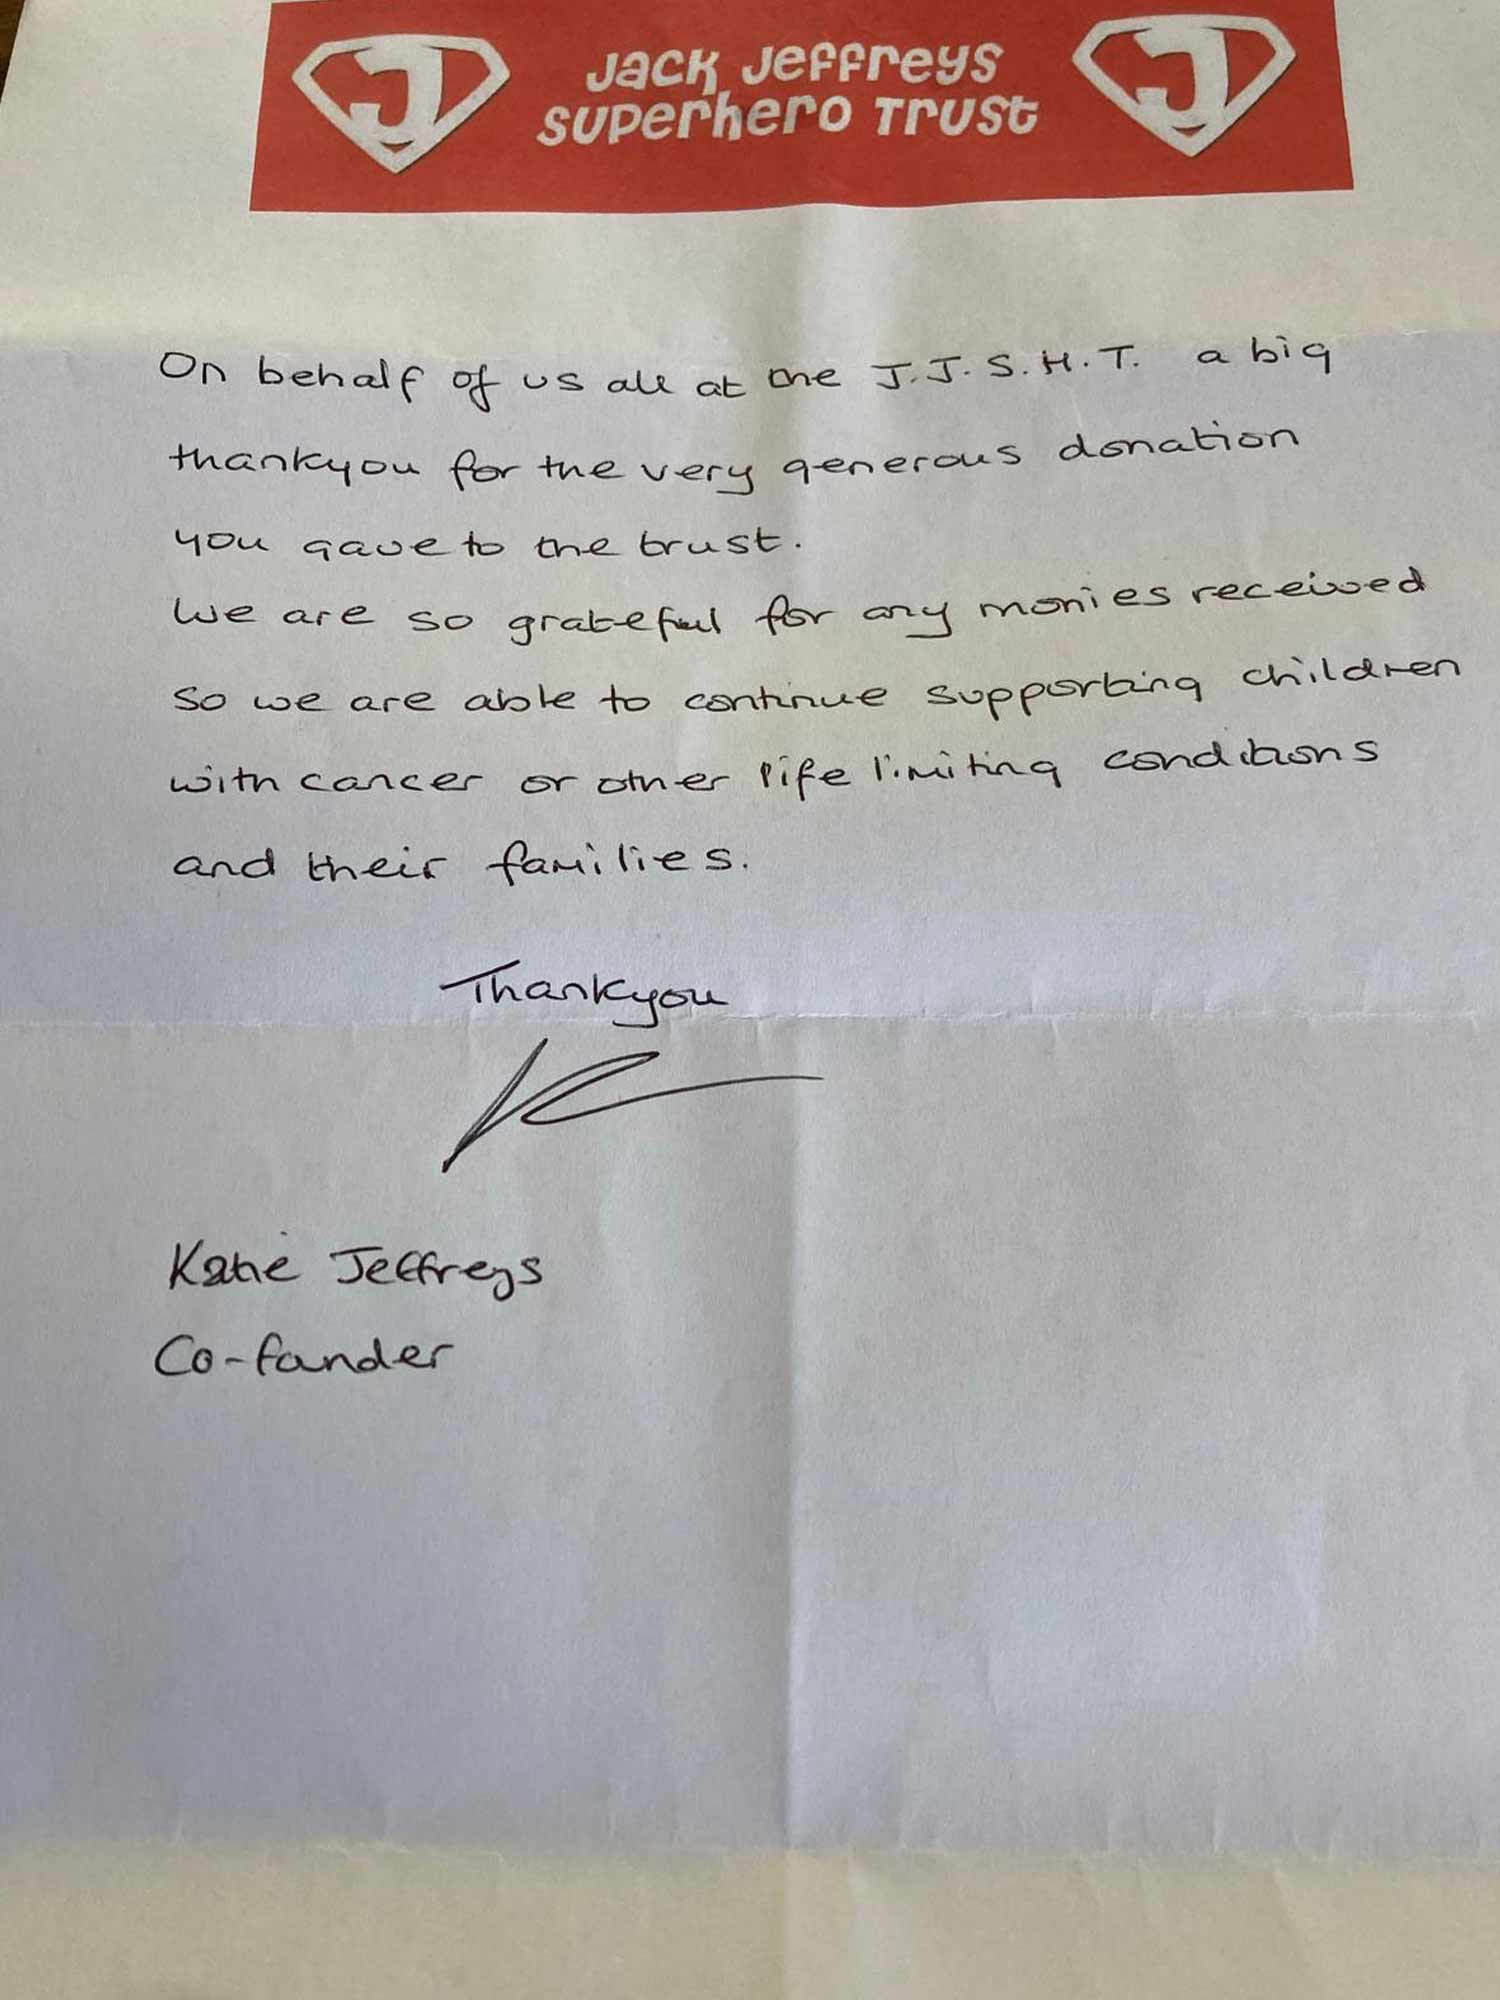 Jack Jeffreys
Superhero Trust
On behalf of us all at the J.J.S.H.T. a big
thankyou for the very generous donation
you gave to the trust.
We are so grateful for any monies received
so we are able to continue supporting children
with cancer or other life limiting conditions
and their families.
Thankyou
Katie Jeffreys
Co-founder